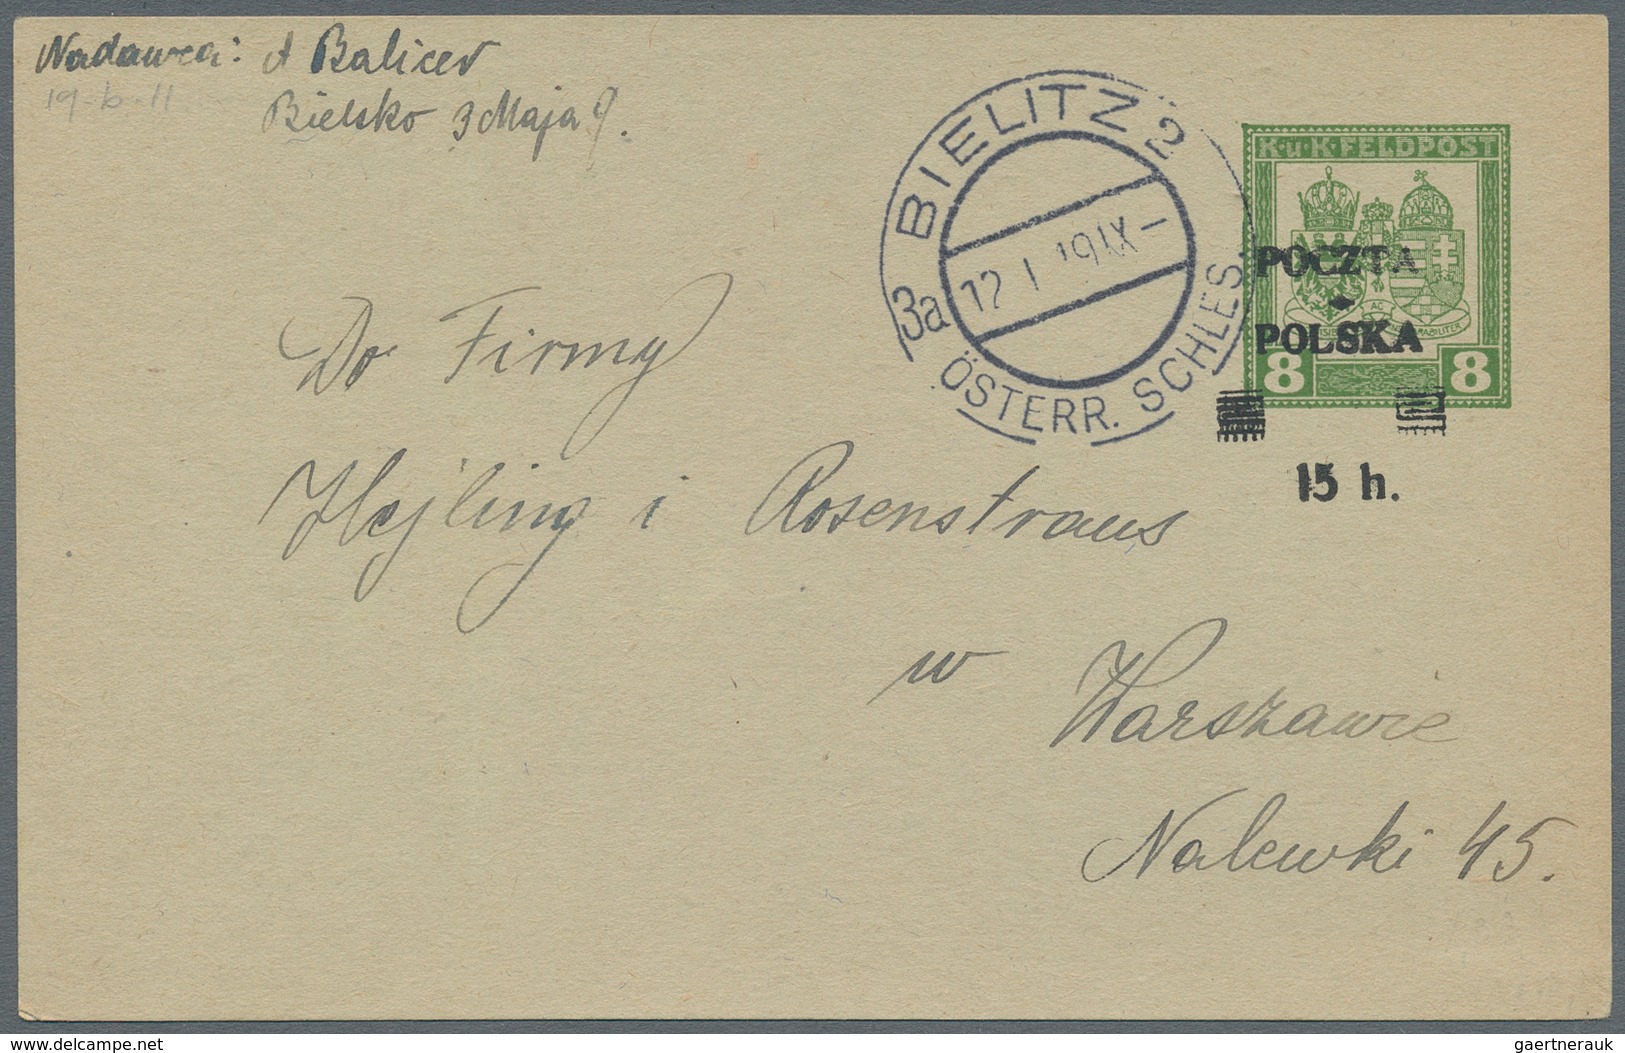 Nadawca: A Balicer
Bielsko 3 Maja 9.
19-6-11
BIELITZ 2
3a
12 I 19 IX-
ÖSTERR. SCHLES.
K.u.K. FELDPOST
POCZTA
POLSKA
8 8
15 h.
Do Firmy
Hejling i Rosenstraus
w Warszawie
Nalewki 45.
gaertnerauk